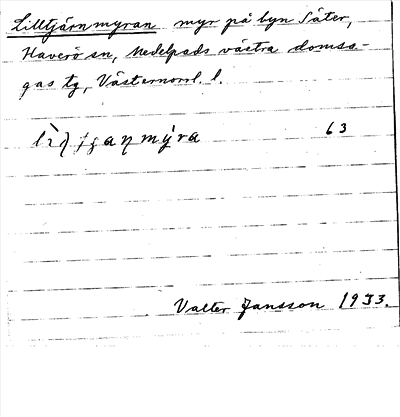 Lilltjärnmyran myr på byn Säter,
Haverö sn, Medelpads västra domsa-
gas tg, Västernorrl. l.
63
Valter Jansson 1933.